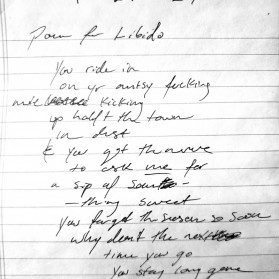 Poem for Libido
You ride in
on yr antsy fucking
mule kicking
up half the town
in dust
& you got the nerve
to ask me for
a sip of some-
-thing sweet
you forget the season so soon
why don't the next
time you go
you stay long gone